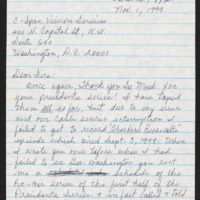 Nov. 1, 1999.
C-Span Viewers Services
400 N. Capitol St., N.W.
Suite 650
Washington, D.C. 20001
Dear Sirs:
Once again, Thank you So Much for
your presidents series! I have taped
them all so far, but due to my error
and our cable service interruption I
failed to get to record Theodore Roosevelt's
episode which aired Sept. 3, 1999. When
I wrote you once before when I had
failed to see Geo. Washington you sent
me a schedule of the
Re-Air series of the first half of the
Presidents Series. I in fact Called & told